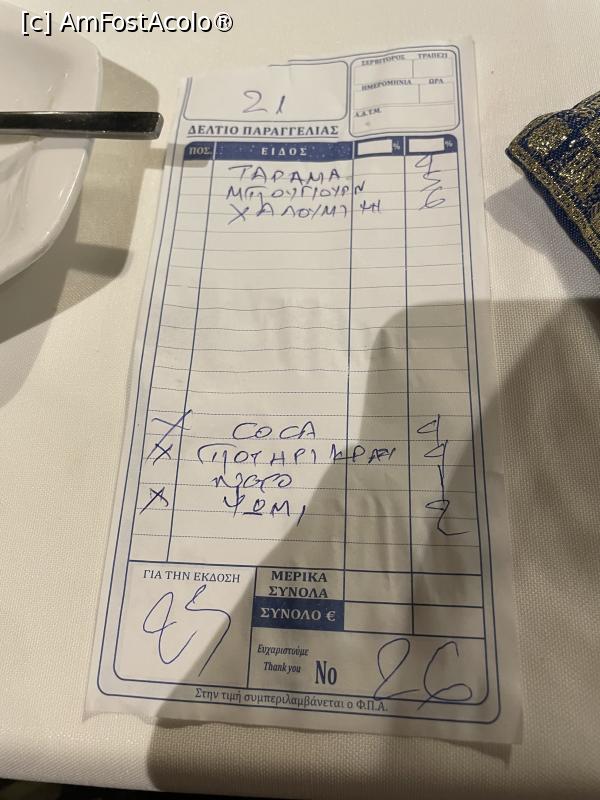 [c] AmFostAcolo®
ΣΕΡΒΙΤΟΡΟΣ ΤΡΑΠΕΖΙ
21
ΗΜΕΡΟΜΗΝΙΑ ΩΡΑ
Δ.Δ.Τ.Μ.
ΔΕΛΤΙΟ ΠΑΡΑΓΓΕΛΙΑΣ
ΠΟΣ. ΕΙΔΟΣ % %
ΤΑΡΑΜΑ 4
ΜΠΟΥΓΙΟΥΡΝ 5
ΧΑΛΟΥΜΙ 6
COCA 4
ΠΟΤΗΡΙ ΚΡΑΣΙ 4
ΝΕΡΟ 1
ΨΩΜΙ 2
ΓΙΑ ΤΗΝ ΕΚΔΟΣΗ ΜΕΡΙΚΑ
ΣΥΝΟΛΑ
ΣΥΝΟΛΟ €
Ευχαριστούμε
Thank you No 26
Στην τιμή συμπεριλαμβάνεται ο Φ.Π.Α.